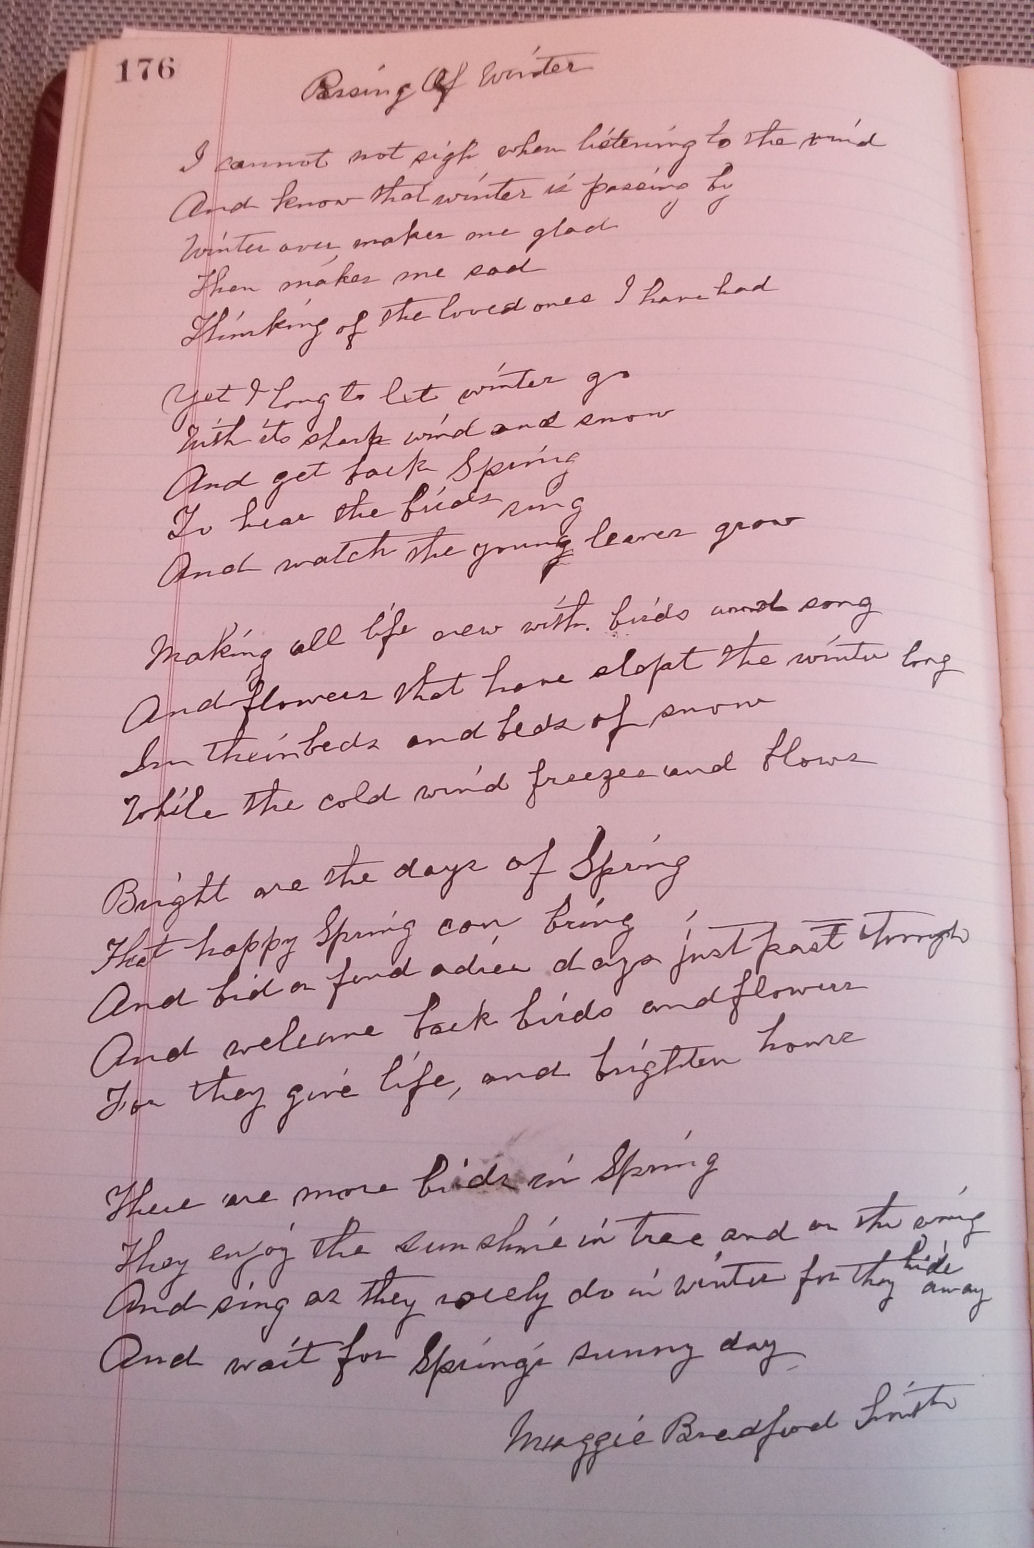 176
Passing Of Winter
I cannot not sigh when listening to the wind
And know that winter is passing by
Winter over makes me glad
Then makes me sad
Thinking of the loved ones I have had
Yet I long to let winter go
With its sharp wind and snow
And get back Spring
To hear the birds sing
And watch the young leaves grow
Making all life new with birds and song
And flowers that have slept the winter long
In their beds and beds of snow
While the cold wind freezes and blows
Bright are the days of Spring
That happy Spring can bring
And bid a fond adieu days just past through
And welcome back birds and flowers
For they give life, and brighten hours
There are more birds in Spring
They enjoy the sunshine in tree and on the wing
And sing as they rarely do in winter for they hide away
And wait for Spring's sunny day
Maggie Bradford Smith